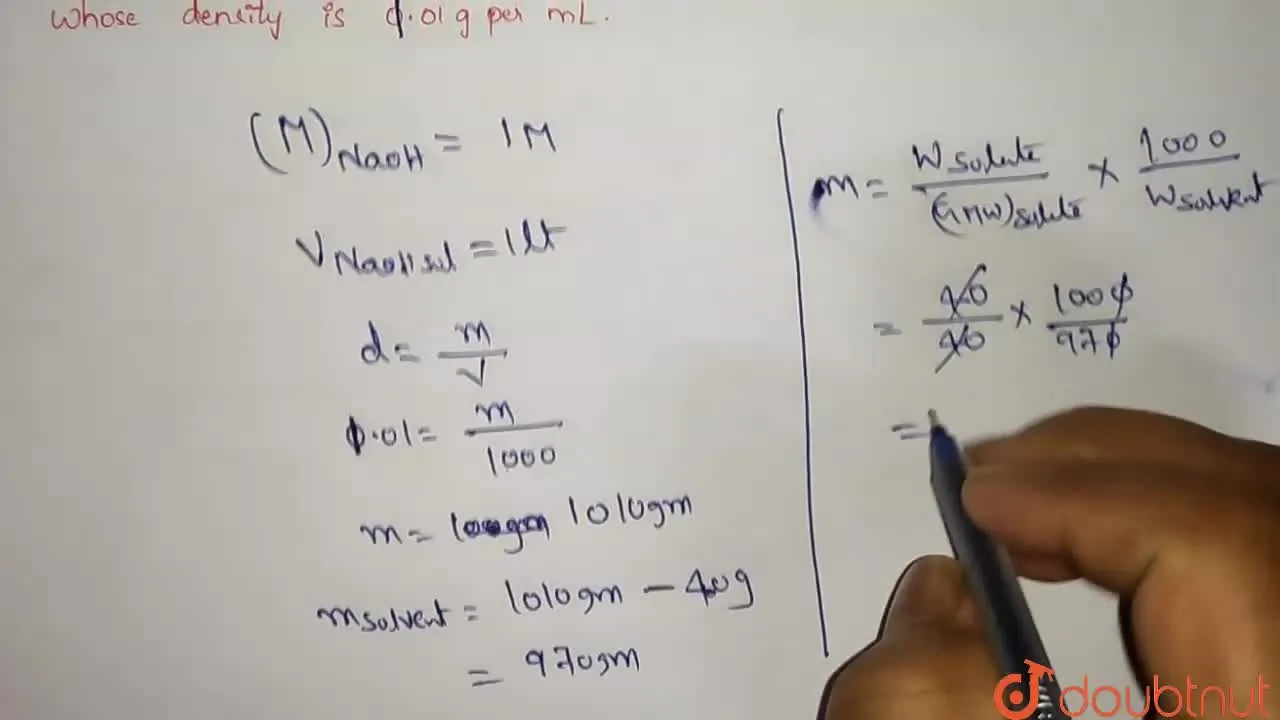 whose density is 1.01 g per mL.
(M)NaOH = 1M
VNaOH sol = 1 lt
d = m/V
1.01 = m/1000
m = 1010gm
msolvent = 1010gm - 40g
= 970gm
m = Wsolute/(GMW)solute × 1000/Wsolvent
= 40/40 × 1000/970
=
doubtnut